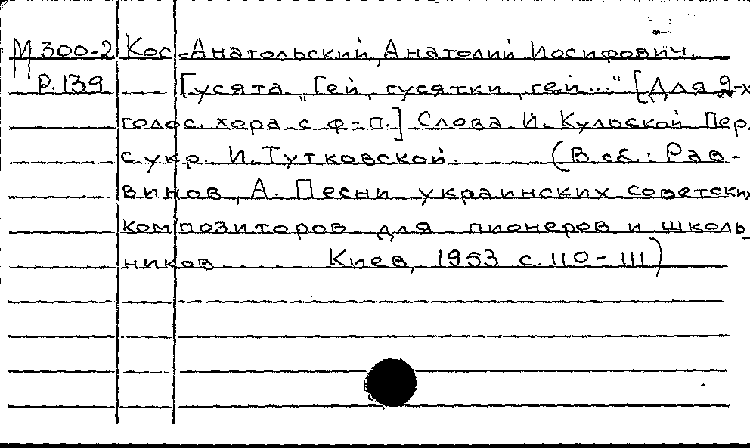 М 300-2 Кос-Анатольский, Анатолий Иосифович.
Р.139 Гусята „Гей, гусятки, гей..." [Для 2-х
голос. хора с ф-п.] Слова И. Кульской Пер.
с укр. И. Тутковской. (В сб.: Рав-
винов, А. Песни украинских советских
композиторов для пионеров и школь-
ников Киев, 1953 с. 110-111)